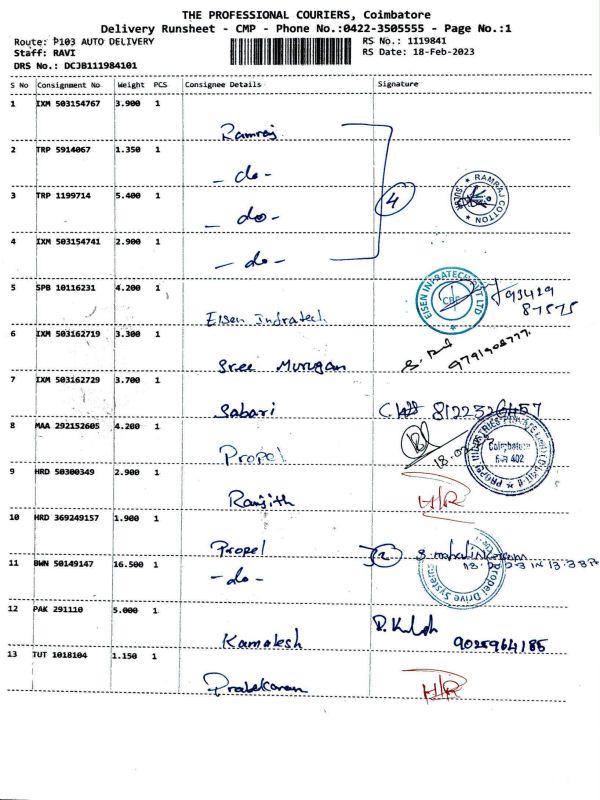 THE PROFESSIONAL COURIERS, Coimbatore
Delivery Runsheet - CMP - Phone No.:0422-3505555 - Page No.:1
Route: P103 AUTO DELIVERY
Staff: RAVI
DRS No.: DCJB111984101
RS No.: 1119841
RS Date: 18-Feb-2023
S No Consignment No Weight PCS Consignee Details Signature
1 IXM 503154767 3.900 1
Ramraj
2 TRP 5914067 1.350 1
- do -
3 TRP 1199714 5.400 1
- do -
4
RAMRAJ COTTON
4 IXM 503154741 2.900 1
- do -
5 SPB 10116231 4.200 1
Eisen Indratech
EISEN INFRATECH PVT LTD
93419
87575
6 IXM 503162719 3.300 1
Sree Murugan
9791908777
7 IXM 503162729 3.700 1
Sabari
8 MAA 292152605 4.200 1
Propel
Coimbatore
9 HRD 50300349 2.900 1
Ranjith
H/R
10 HRD 369249157 1.900 1
Propel
2
11 BWN 50149147 16.500 1
- do -
Propel Drive System
12 PAK 291110 5.000 1
Kamalesh
9025964185
13 TUT 1018104 1.150 1
H/R